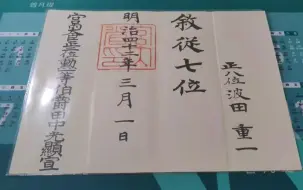 正八位波田重一
敘從七位
明治四十二年三月一日
宮內大臣正二位勳一等伯爵田中光顯宣